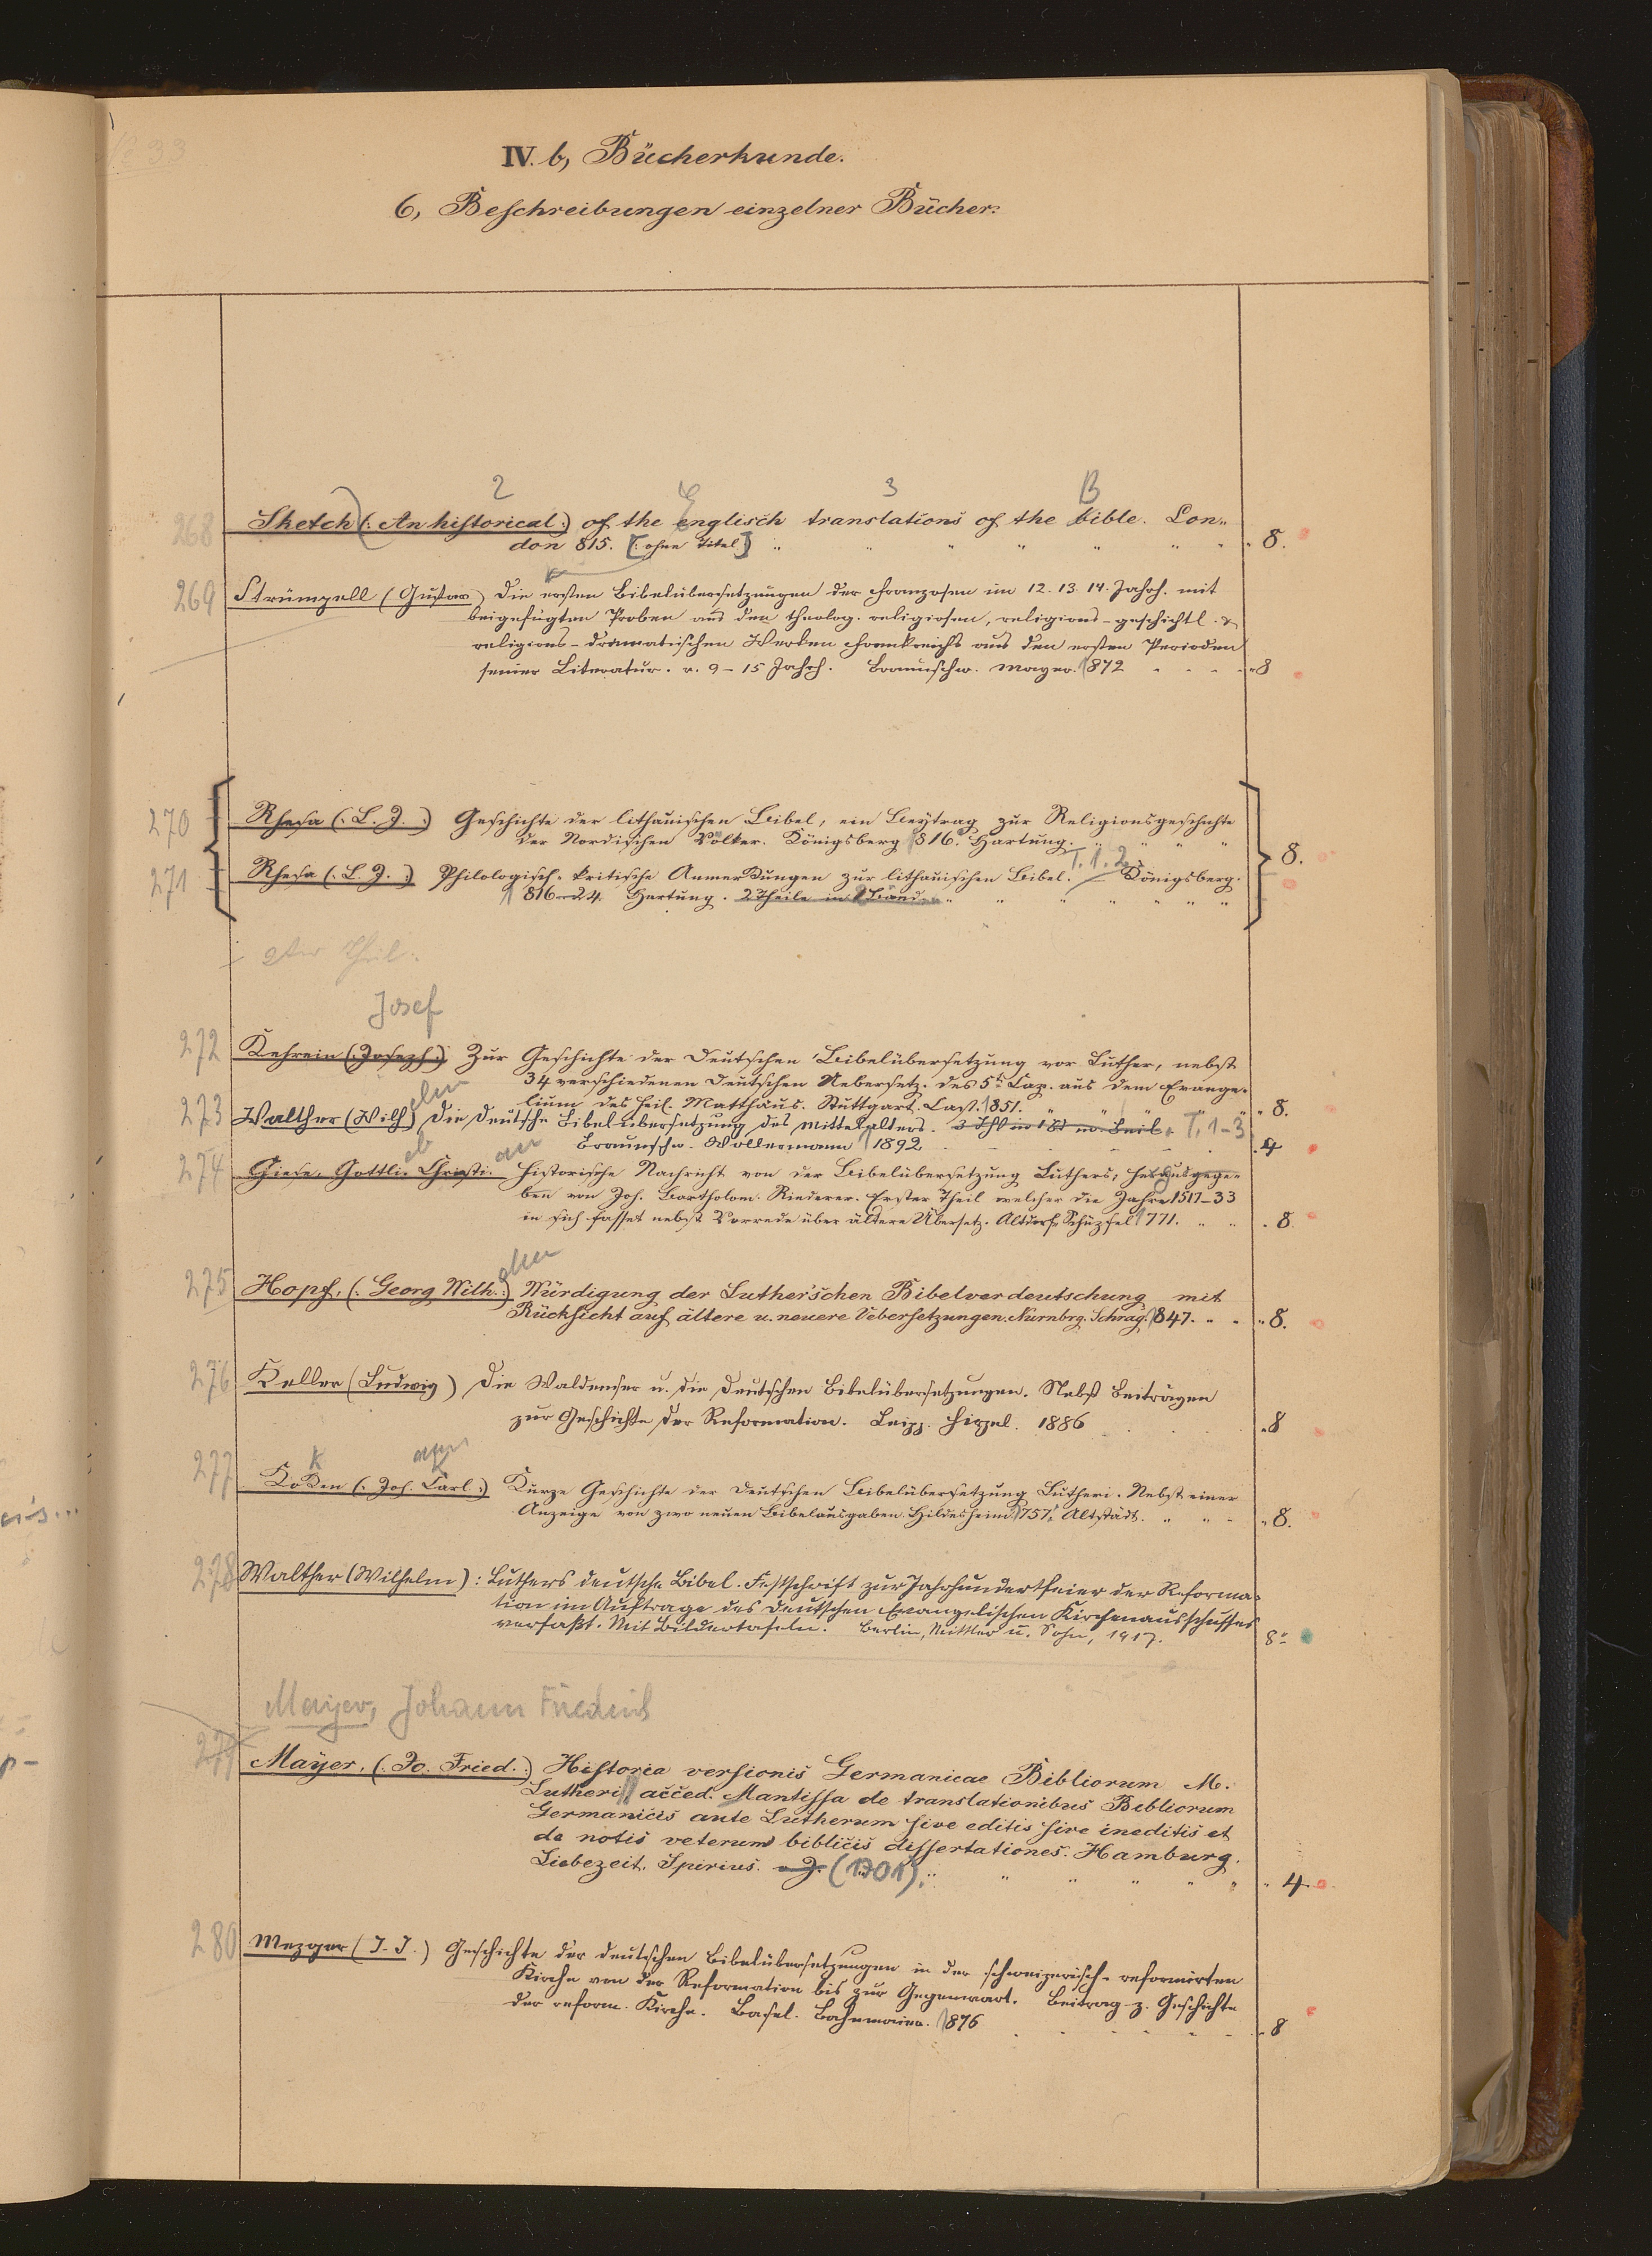 IV. b, Bücherkunde.
6, Beschreibungen einzelner Bücher.
2 E 3 B
268 Sketch (: An historical :) of the englisch translations of the bible. Lon-
don 815. [: ohne Titel] " " " " " " " 8.
269 Strümpell (Gustav) Die ersten Bibelübersetzungen der Franzosen im 12. 13. 14. Jahrh. mit
beigefügten Proben aus den theolog. religiosen, religions-geschichtl. &
religions-dramatischen Werken Frankreichs aus den ersten Perioden
seiner Literatur. v. 9-15 Jahrh. Braunschw. Mayer. 1872 8
270 Rhesa (: L. J. :) Geschichte der lithauischen Bibel, ein Beytrag zur Religionsgeschichte
der Nordischen Völker. Königsberg 1816. Hartung. " " " "
8.
T. 1. 2
271 Rhesa (: L. J. :) Philologisch-kritische Anmerkungen zur lithauischen Bibel. Königsberg.
1816-24. Hartung. 2 Theile in 2 Bänden " " " " " "
2ter Theil.
Josef
272 Kehrein (: Joseph :) Zur Geschichte der Deutschen Bibelübersetzung vor Luther, nebst
34 verschiedenen Deutschen Uebersetz. des 5t. Cap. aus dem Evange-
lium des heil. Matthäus. Stuttgart. Cast. 1851. " " " " 8.
elm
273 Walther (Wilh) Die deutsche Bibelübersetzung des Mittelalters. 3 Thl in 1 Bd T. 1-3
Braunschw. Wollermann 1892 4
eb an
274 Giese, Gottli. Christi. Historische Nachricht von der Bibelübersetzung Luthers; herausgege-
ben von Joh. Bartholom. Riederer. Erster Theil welcher die Jahre 1517-33
in sich fasset nebst Vorrede über ältere Übersetz. Altdorf. Schüpfel 1771. " " 8.
elm
275 Hopf, (: Georg Wilh. :) Würdigung der Luther'schen Bibelverdeutschung mit
Rücksicht auf ältere u. neuere Uebersetzungen. Nürnbrg. Schrag. 1847. " " 8.
276 Keller (Ludwig) Die Waldenser u. die deutschen Bibelübersetzungen. Nebst Beiträgen
zur Geschichte der Reformation. Leipz. Hirzel. 1886 8
K ann K
277 Koken (: Joh. Carl :) Kurze Geschichte der Deutschen Bibelübersetzung Lutheri. Nebst einer
Anzeige von zwo neuen Bibelausgaben. Hildesheim 1757. Altstädt. " " " 8.
278 Walther (Wilhelm): Luthers deutsche Bibel. Festschrift zur Jahrhundertfeier der Reforma-
tion im Auftrage des Deutschen Evangelischen Kirchenausschusses
verfaßt. Mit Bildertafeln. Berlin, Mittler u. Sohn, 1917. 8°
Mayer, Johann Friedrich
279 Mayer, (: Jo. Fried. :) Historia versionis Germanicae Bibliorum M.
Lutheri acced. Mantissa de translationibus Bibliorum
Germanicis ante Lutherum sive editis sive ineditis et
de notis veterum biblicis dissertationes. Hamburg.
Liebezeit. Spirius. o. J. (1701). " " " " " 4
280 Mezger (J. J.) Geschichte der deutschen Bibelübersetzungen in der schweizerisch-reformirten
Kirche von der Reformation bis zur Gegenwart. Beitrag z. Geschichte
der reform. Kirche. Basel. Bahnmaier. 1876 8